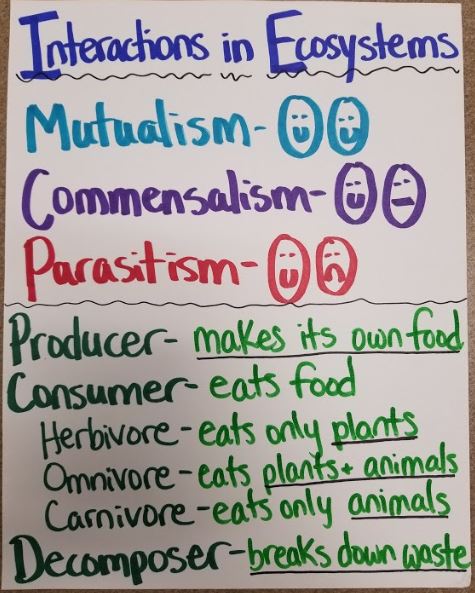 Interactions in Ecosystems
Mutualism-
Commensalism-
Parasitism-
Producer- makes its own food
Consumer- eats food
Herbivore- eats only plants
Omnivore- eats plants + animals
Carnivore- eats only animals
Decomposer- breaks down waste